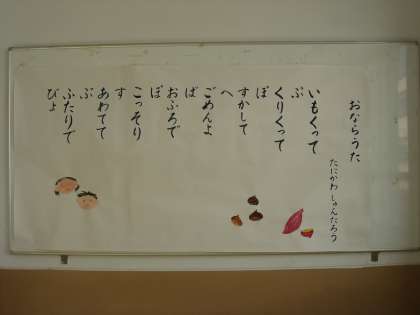 おならうた
たにかわ しゅんたろう
いもくって
ぶ
くりくって
ぼ
すかして
へ
ごめんよ
ば
おふろで
ぽ
こっそり
す
あわてて
ぷ
ふたりで
ぴょ